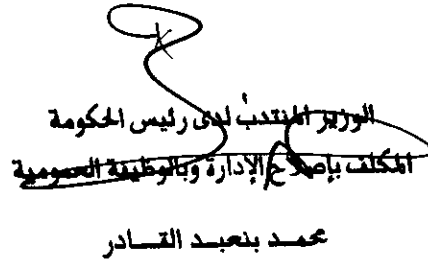 الوزير المنتدب لدى رئيس الحكومة
المكلف بإصلاح الإدارة وبالوظيفة العمومية
محمد بنعبد القادر